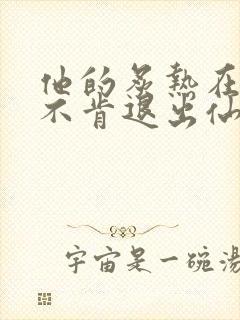 他的炙热在
不肯退出仙
宇宙是一碗汤